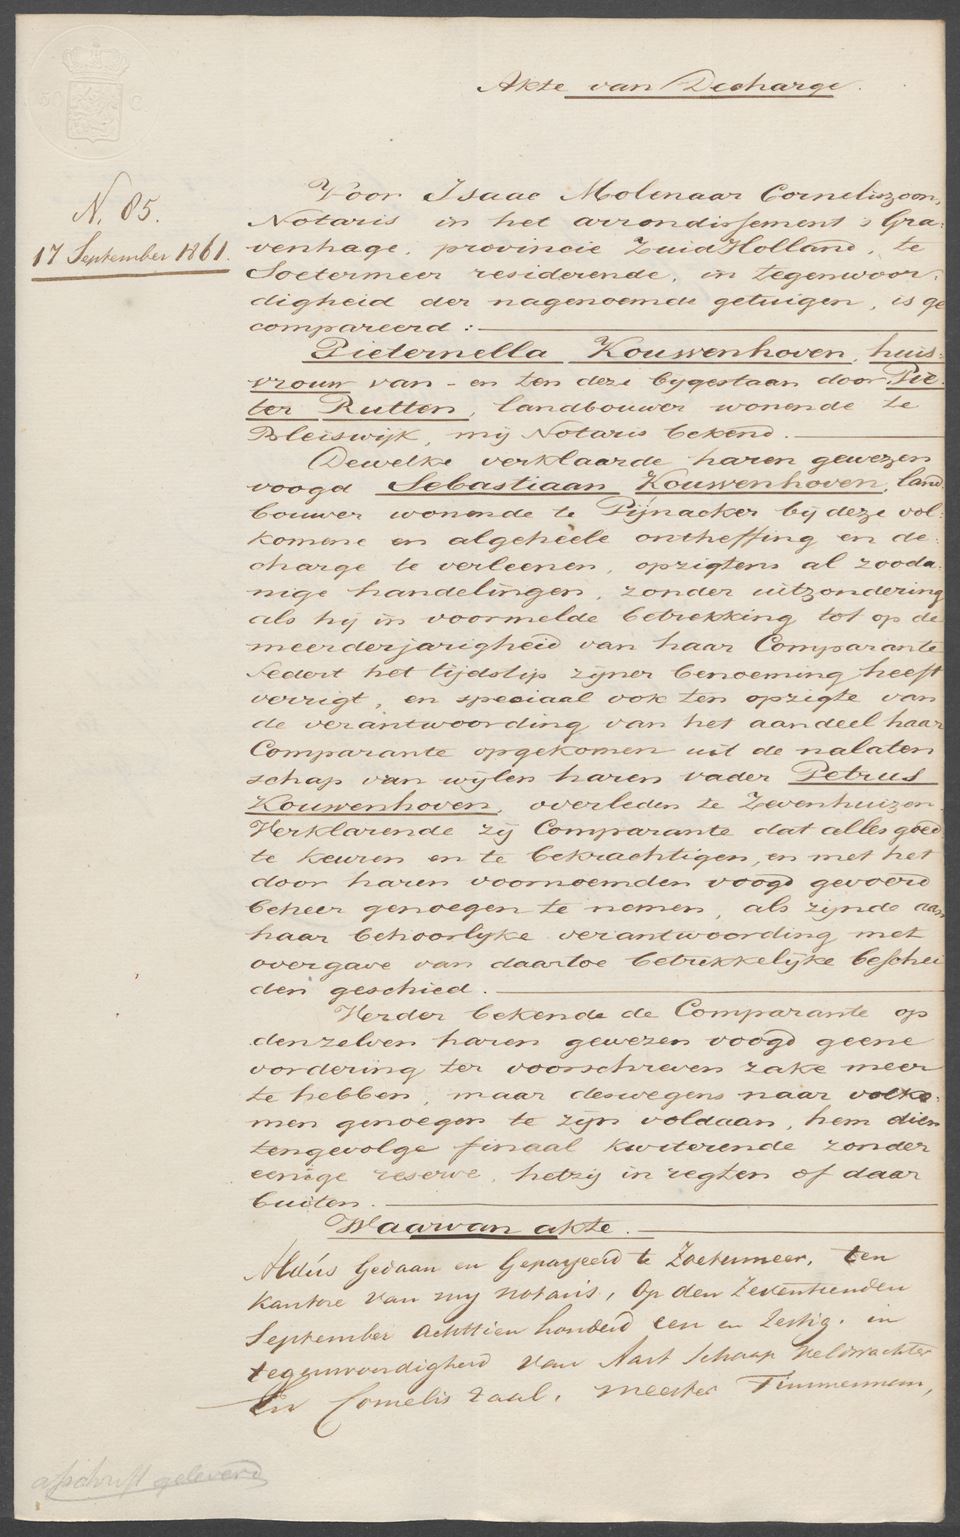 Akte van Decharge.
N. 85.
17 September 1861.
Voor Isaac Molenaar Corneliszoon,
Notaris in het arrondissement 's Gra-
venhage, provincie Zuid Holland, te
Soetermeer residerende, in tegenwoor-
digheid der nagenoemde getuigen, is ge
compareerd:
Pieternella Kouwenhoven, huis-
vrouw van - en ten deze bygestaan door Pie-
ter Rutten, landbouwer wonende te
Bleiswijk, mij Notaris bekend.
Dewelke verklaarde haren gewezen
voogd Sebastiaan Kouwenhoven, land
bouwer wonende te Pijnacker bij deze vol-
komene en algeheele ontheffing en de-
charge te verleenen, opzigtens al zooda-
nige handelingen, zonder uitzondering
als hij in voormelde betrekking tot op de
meerderjarigheid van haar Comparante
sedert het tijdstip zijner benoeming heeft
verrigt, en speciaal ook ten opzigte van
de verantwoording van het aandeel haar
Comparante opgekomen uit de nalaten
schap van wijlen haren vader Petrus
Kouwenhoven, overleden te Zevenhuizen.
Verklarende zij Comparante dat alles goed
te keuren en te bekrachtigen, en met het
door haren voornoemden voogd gevoerd
beheer genoegen te nemen, als zijnde aan
haar behoorlyke verantwoording met
overgave van daartoe betrekkelijke beschei
den geschied.
Verder bekende de Comparante op
denzelven haren gewezen voogd geene
vordering ter voorschreven zake meer
te hebben, maar deswegens naar volko-
men genoegen te zijn voldaan, hem dien
tengevolge finaal kwiterende zonder
eenige reserve, hetzij in regten of daar
buiten.
Waarvan akte.
Aldus Gedaan en Gepasseerd te Zoetermeer, ten
kantore van my notaris, Op den Zeventienden
September Achttien honderd een en Zestig, in
tegenwoordigheid van Aart Schaap Veldwachter
En Cornelis Zaal, meester Timmerman,
afschrift geleverd